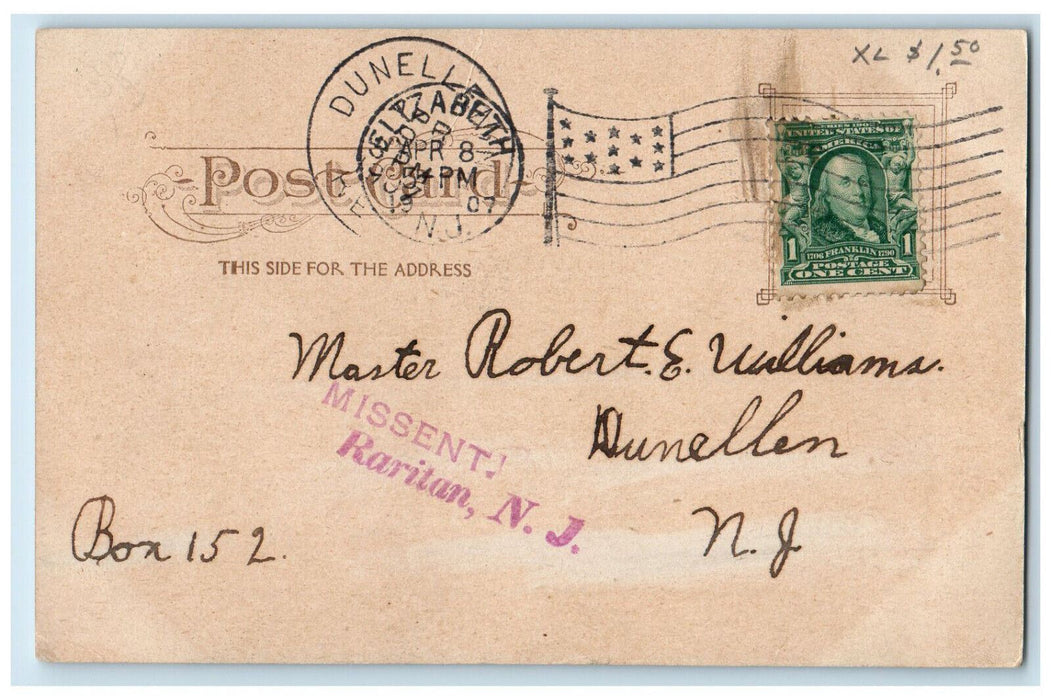 XL $1.50
DUNELLEN
ELIZABETH
APR 8
PM
19 07
N.J.
Post Card
THIS SIDE FOR THE ADDRESS
SERIES 1902
UNITED STATES OF
AMERICA
1706 FRANKLIN 1790
1 1
POSTAGE
ONE CENT
Master Robert. E. Williams.
Dunellen
N. J.
MISSENT.
Raritan, N. J.
Box 152.